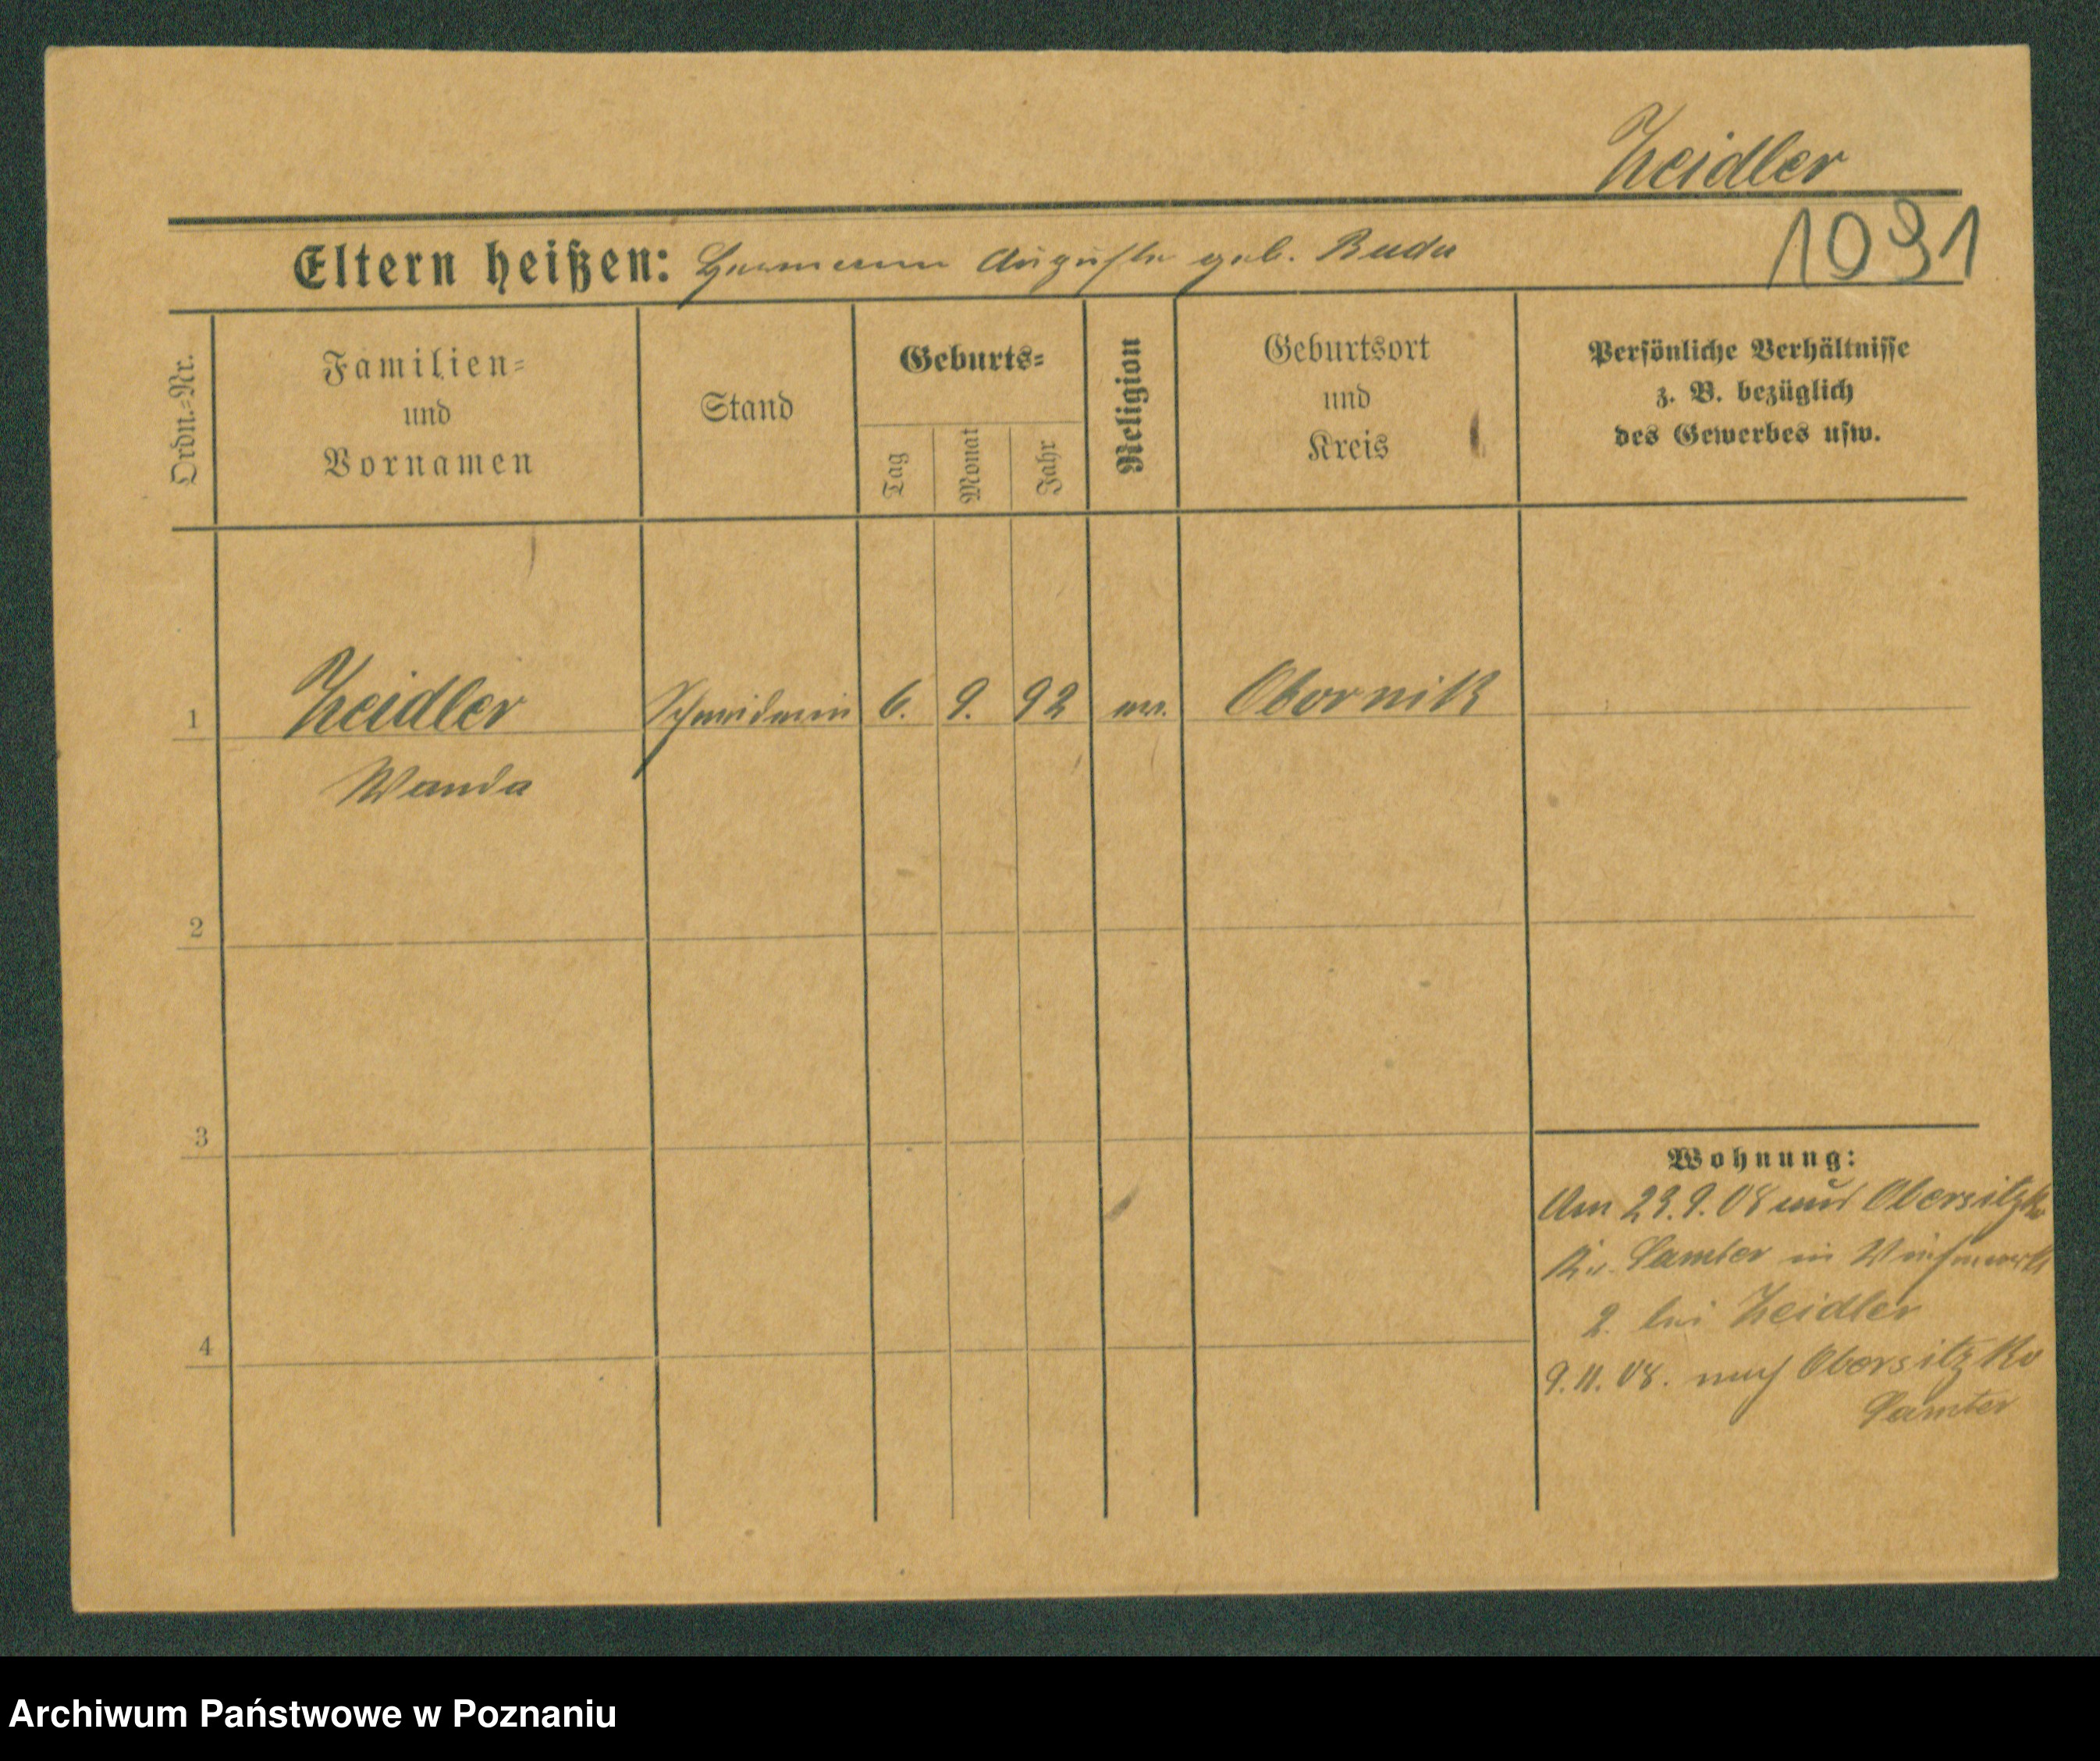 Zeidler
1091
Eltern heißen: Hermann Auguste geb. Buda
Ordn.=Nr.
Familien=
und
Vornamen
Stand
Geburts=
Tag
Monat
Jahr
Religion
Geburtsort
und
Kreis
Persönliche Verhältnisse
z. B. bezüglich
des Gewerbes usw.
1 Zeidler Schneiderin 6. 9. 92 ev. Obornik
Wanda
2
3
4
Wohnung:
Am 29.9.08 aus Obersitzko
Kr. Samter in
2. bei Zeidler
9.11.08. nach Obersitzko
Samter
Archiwum Państwowe w Poznaniu